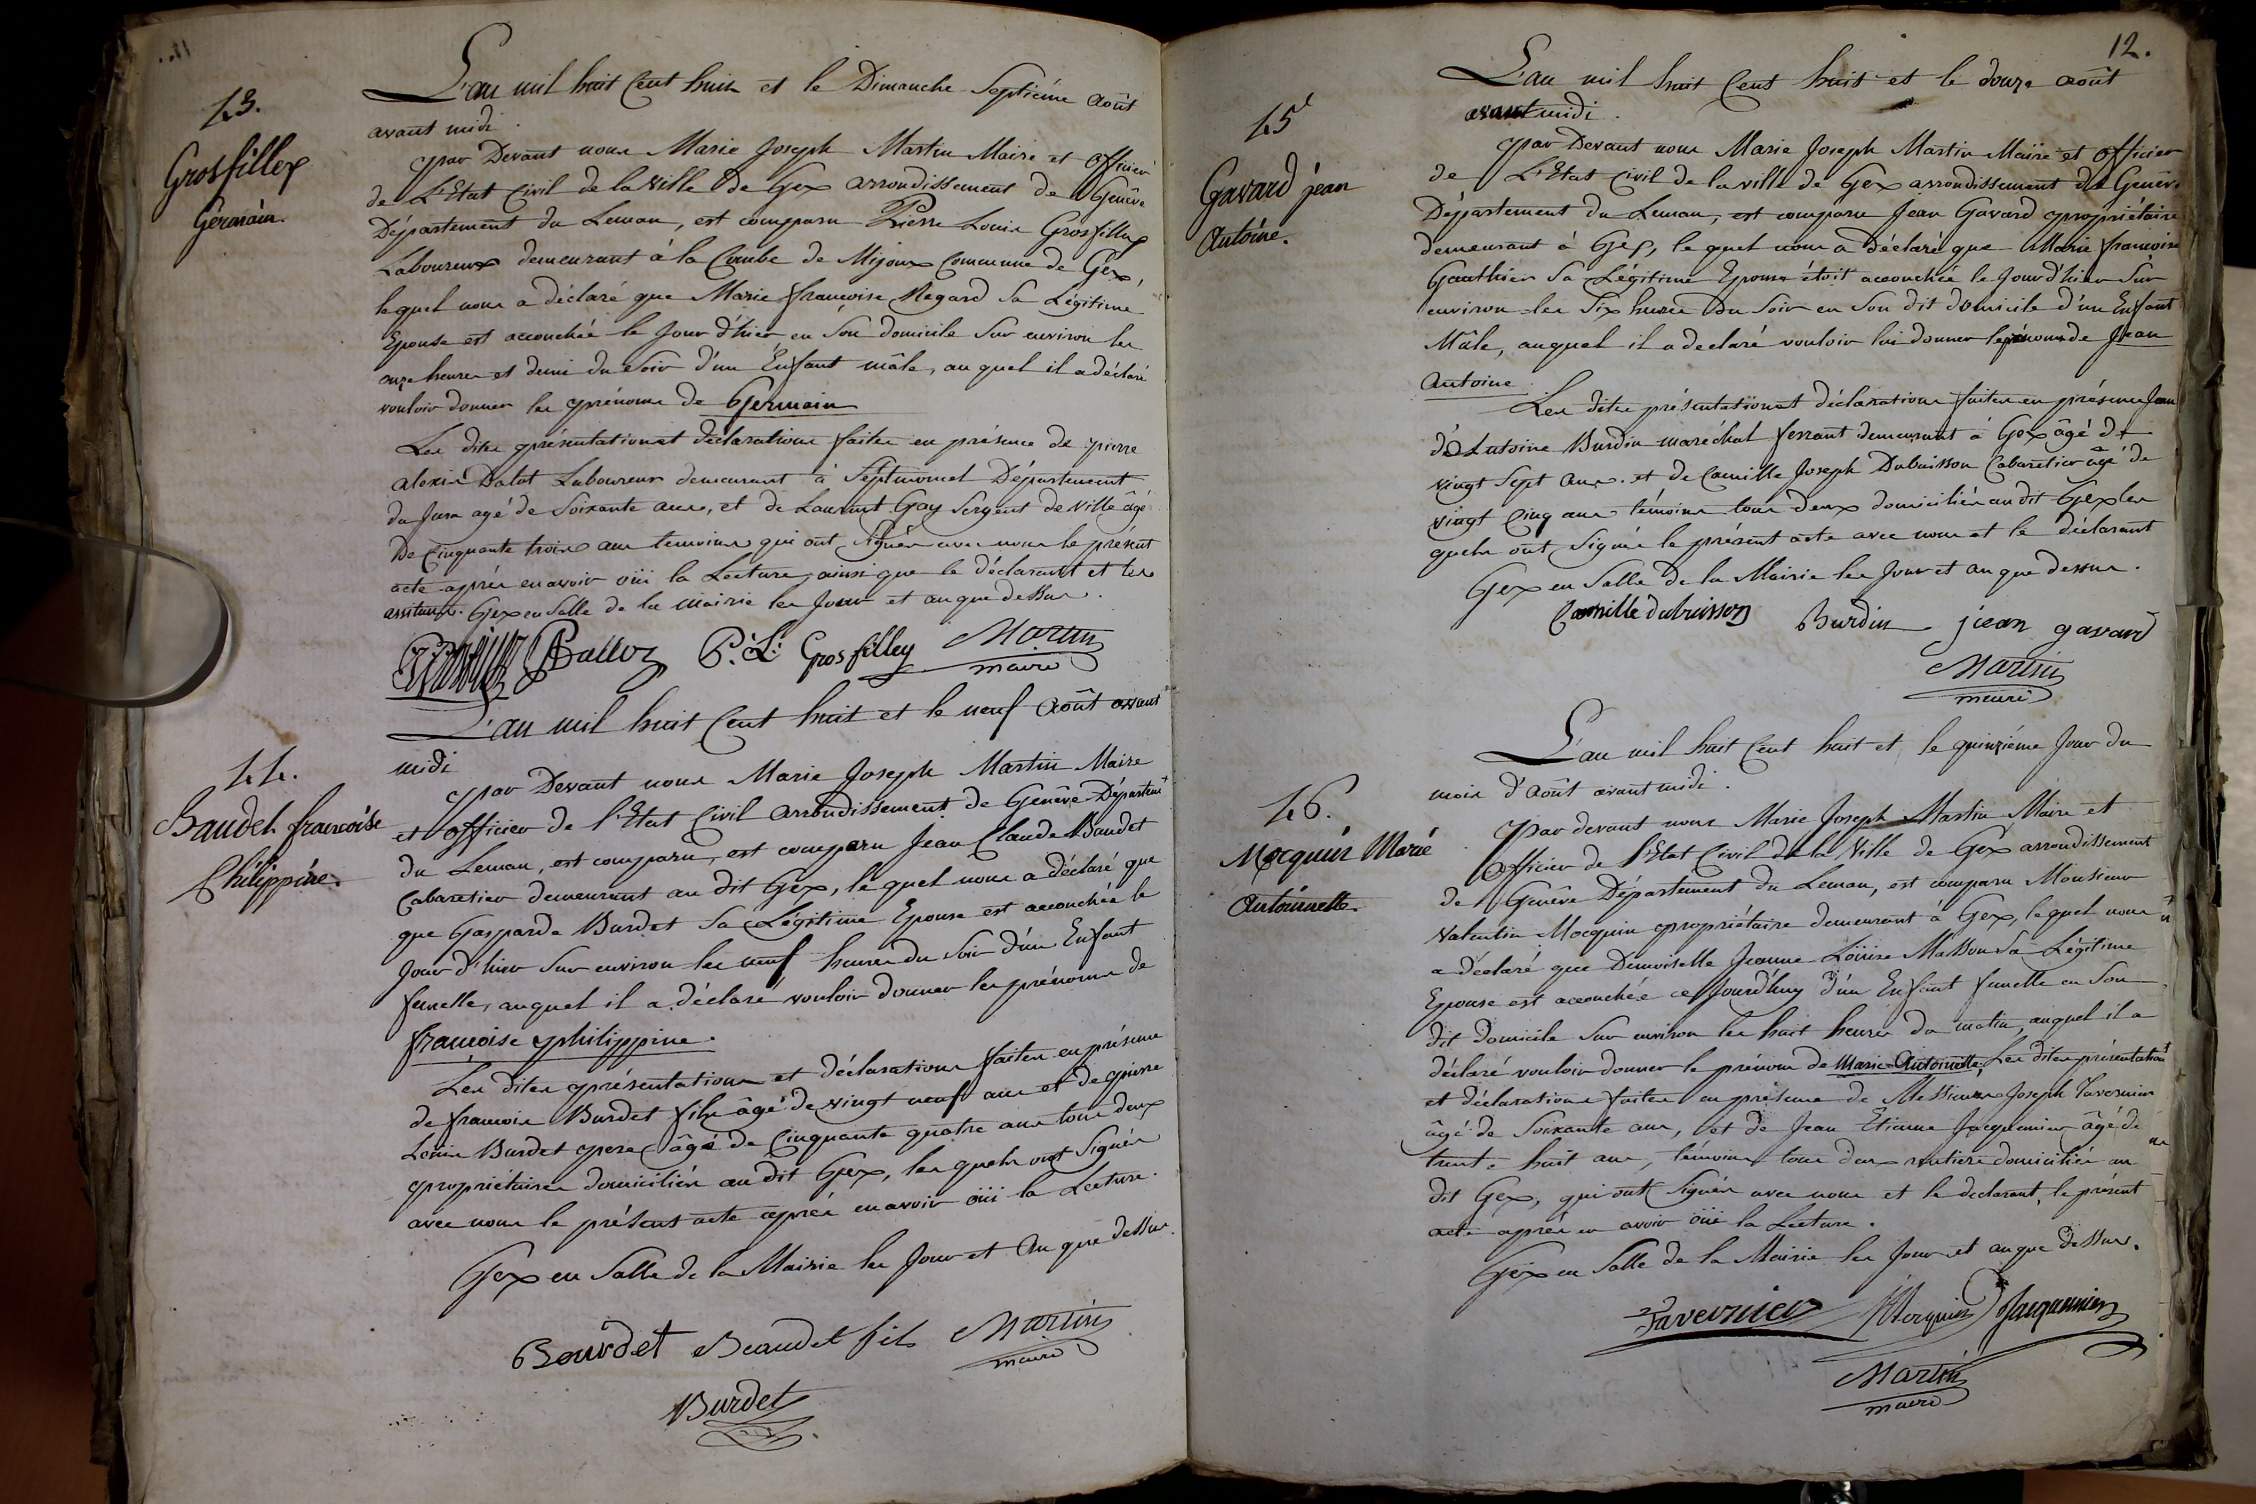 43.
Grosfillex
Germain.
L'an mil huit Cent huit et le Dimanche Septiéme Août
avant midi.
par Devant nous Marie Joseph Martin Maire et officier
de L'Etat Civil de la Ville de Gex arrondissement de Genêve
Département du Leman, est comparu Pierre Louis Grosfillex
Laboureur demeurant à la Combe de Mijoux Commune de Gex,
lequel nous a déclaré que Marie françoise Regard Sa Légitime
Epouse est accouchée le Jour d'hier en Son domicile Sur environ les
onze heures et demi du Soir d'un Enfant mâle, auquel il a déclaré
vouloir donner les prénoms de Germain
Les dites présentation et déclarations faites en présence de pierre
alexis Ballot Laboureur demeurant à Septmoncel Département
du Jura agé de Soixante ans, et de Laurent Gay Sergent de Ville âgé
De Cinquante trois ans temoins qui ont Signés avec nous le présent
acte après en avoir oüi la Lecture, ainsi que le déclarant et les
assistants. Gex en Salle de la Mairie les Jour et an que dessus.
Ballot P. L. Grosfilley Martin
maire
44.
Baudet françoise
Philippine.
L'an mil huit Cent huit et le neuf Août avant
midi
par Devant nous Marie Joseph Martin Maire
et officier de l'Etat Civil arrondissement de Genêve Départemt
du Leman, est comparu, est comparu Jean Claude Baudet
Cabaretier demeurant au dit Gex, lequel nous a déclaré que
que Gasparde Burdet Sa Légitime Epouse est accouchée le
Jour d'hier Sur environ les neuf heures du Soir d'un Enfant
femelle, auquel il a déclaré vouloir donner les prénoms de
françoise philippine.
Les dites présentations et déclarations faites en présence
de françois Burdet fils âgé de vingt neuf ans et de pierre
Louis Burdet pere âgé de Cinquante quatre ans tous deux
propriétaires domiciliés au dit Gex, les quels ont Signés
avec nous le présent acte après en avoir oüi la Lecture.
Gex en Salle de la Mairie les Jour et an que dessus.
Bourdet Beaudet fils Martin
maire
Burdet
12.
45
Gavard jean
Antoine.
L'an mil huit Cent huit et le douze août
avant midi.
par Devant nous Marie Joseph Martin Maire et officier
de L'Etat Civil de la ville de Gex arrondissement de Genêve
Département du Leman, est comparu Jean Gavard propriétaire
demeurant à Gex, lequel nous a déclaré que Marie françoise
Gauthier Sa Légitime Epouse étoit accouchée le Jour d'hier Sur
environ les Six heures du Soir en Son dit domicile d'un Enfant
Mâle, auquel il a declaré vouloir lui donner le prénoms de Jean
Antoine.
Les dites présentation et déclarations faites en présence Jean
Antoine Burdin maréchal ferrant demeurant à Gex âgé de
vingt Sept ans. et de Camille Joseph Dubuisson Cabaretier âgé de
vingt Cinq ans témoins tous deux domiciliés au dit Gex les
quels ont Signés le présent acte avec nous et le déclarant
Gex en Salle de la Mairie les Jour et an que dessus.
Camille dubuisson Burdin jean gavard
Martin
maire
46.
Mocquin Marie
Antoinette.
L'an mil huit Cent huit et, le quinziéme Jour du
mois d'Août avant midi.
par devant nous Marie Joseph Martin Maire et
Officier de l'Etat Civil de la Ville de Gex arrondissement
de Genêve Département du Leman, est comparu Monsieur
Valentin Mocquin propriétaire demeurant à Gex, lequel nous
a déclaré que Demoiselle Jeanne Loüise Masson Sa Légitime
Epouse est accouchée ce Jourd'huy d'un Enfant femelle en Son
dit domicile Sur environ les huit heures du matin, auquel il a
déclaré vouloir donner le prénom de Marie Antoinette, Les dites présentation
et déclarations faites en présence de Messieurs Joseph Tavernier
âgé de Soixante ans, et de Jean Etienne Jacquemier âgé de
trente huit ans, témoins tous deux rentiers domiciliés au
dit Gex, qui ont Signés avec nous et le declarant, le présent
acte après en avoir oüi la Lecture.
Gex en Salle de la Mairie les Jour et an que dessus.
Tavernier Mocquin Jacquemier
Martin
maire